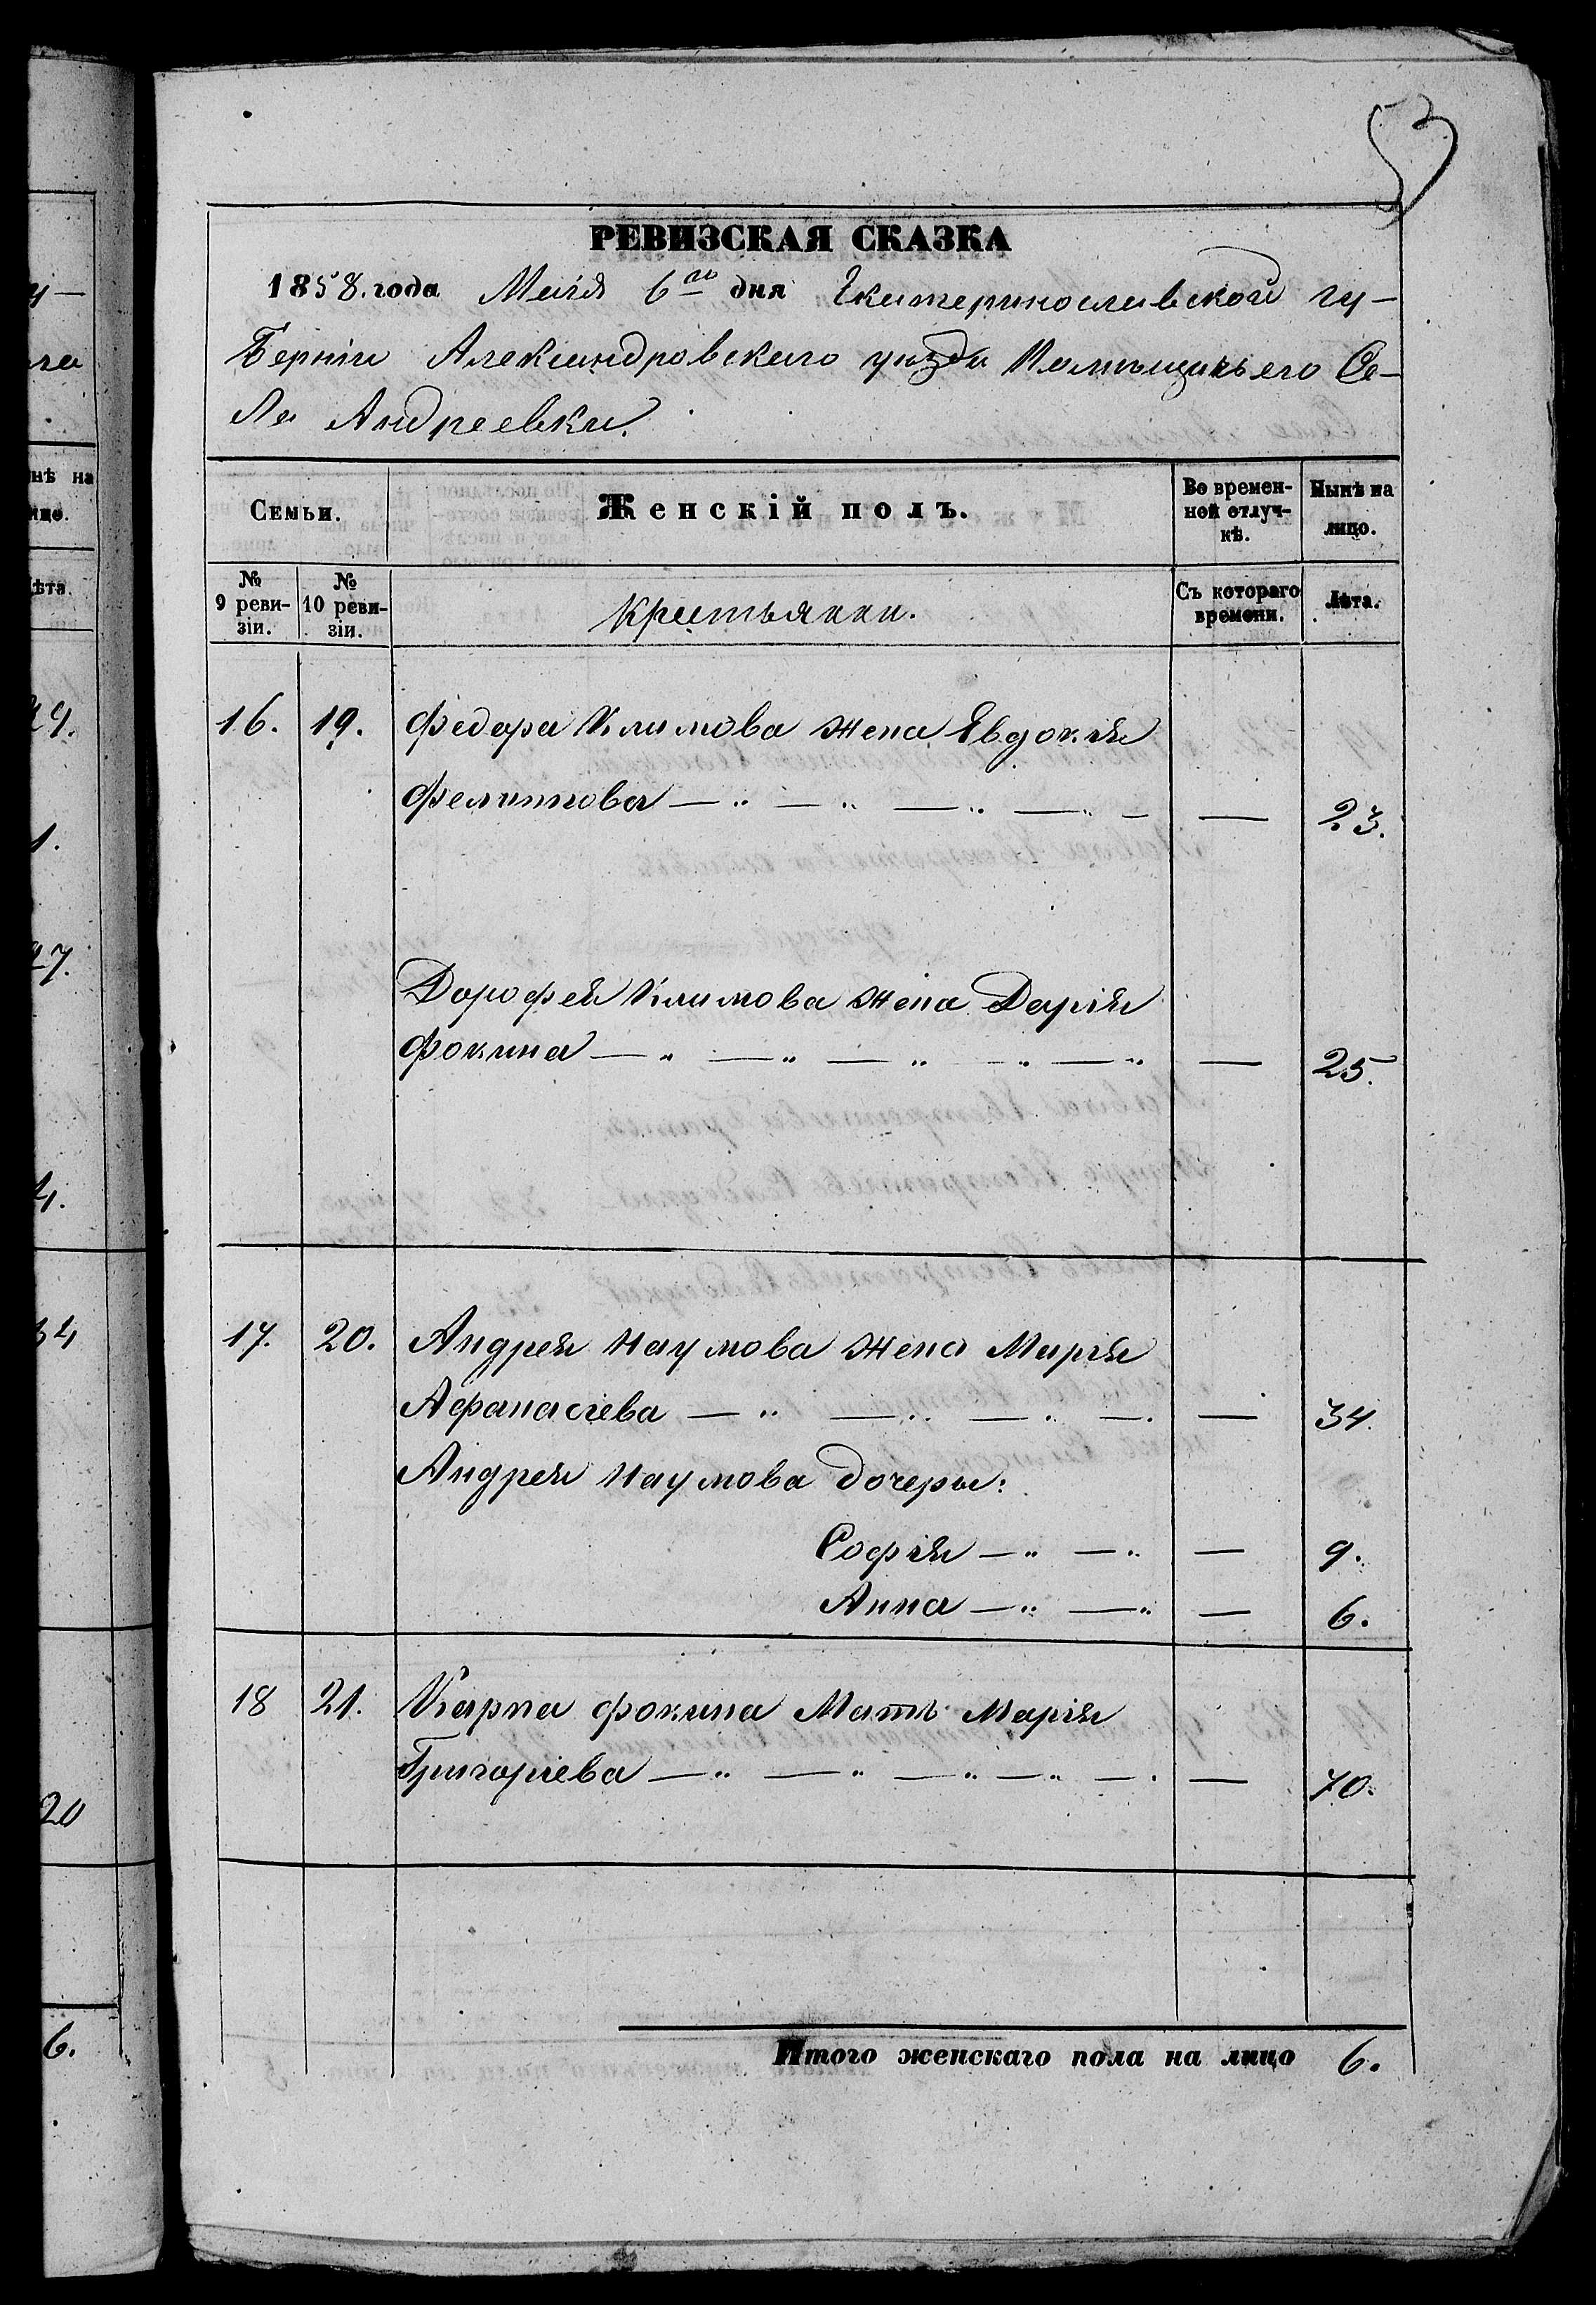 53
РЕВИЗСКАЯ СКАЗКА
1858. года Маія 6го дня Екатеринославской гу-
берніи Александровскаго уѣзда Помѣщичьего Се-
ла Андреевки.
Семьи.
Женскій полъ.
Во времен-
ной отлуч-
кѣ.
Нынѣ на
лицо.
№
9 реви-
зіи.
№
10 реви-
зіи.
Крестьянки.
Съ котораго
времени.
Лѣта.
16. 19. Федора Климова жена Евдокія
— 23.
Дорофея Климова жена Дарія
Фокина — 25.
17. 20. Андрея Наумова жена Марія
Афанасіева — 34.
Андрея Наумова дочери:
Софія — 9.
Анна — 6.
18 21. Карпа Фокина Мать Марія
Григоріева — 70.
Итого женскаго пола на лицо 6.